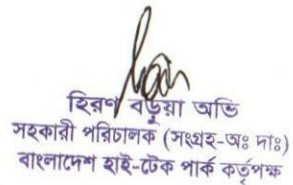 হিরণ বড়ুয়া অভি
সহকারী পরিচালক (সংগ্রহ-অঃ দাঃ)
বাংলাদেশ হাই-টেক পার্ক কর্তৃপক্ষ